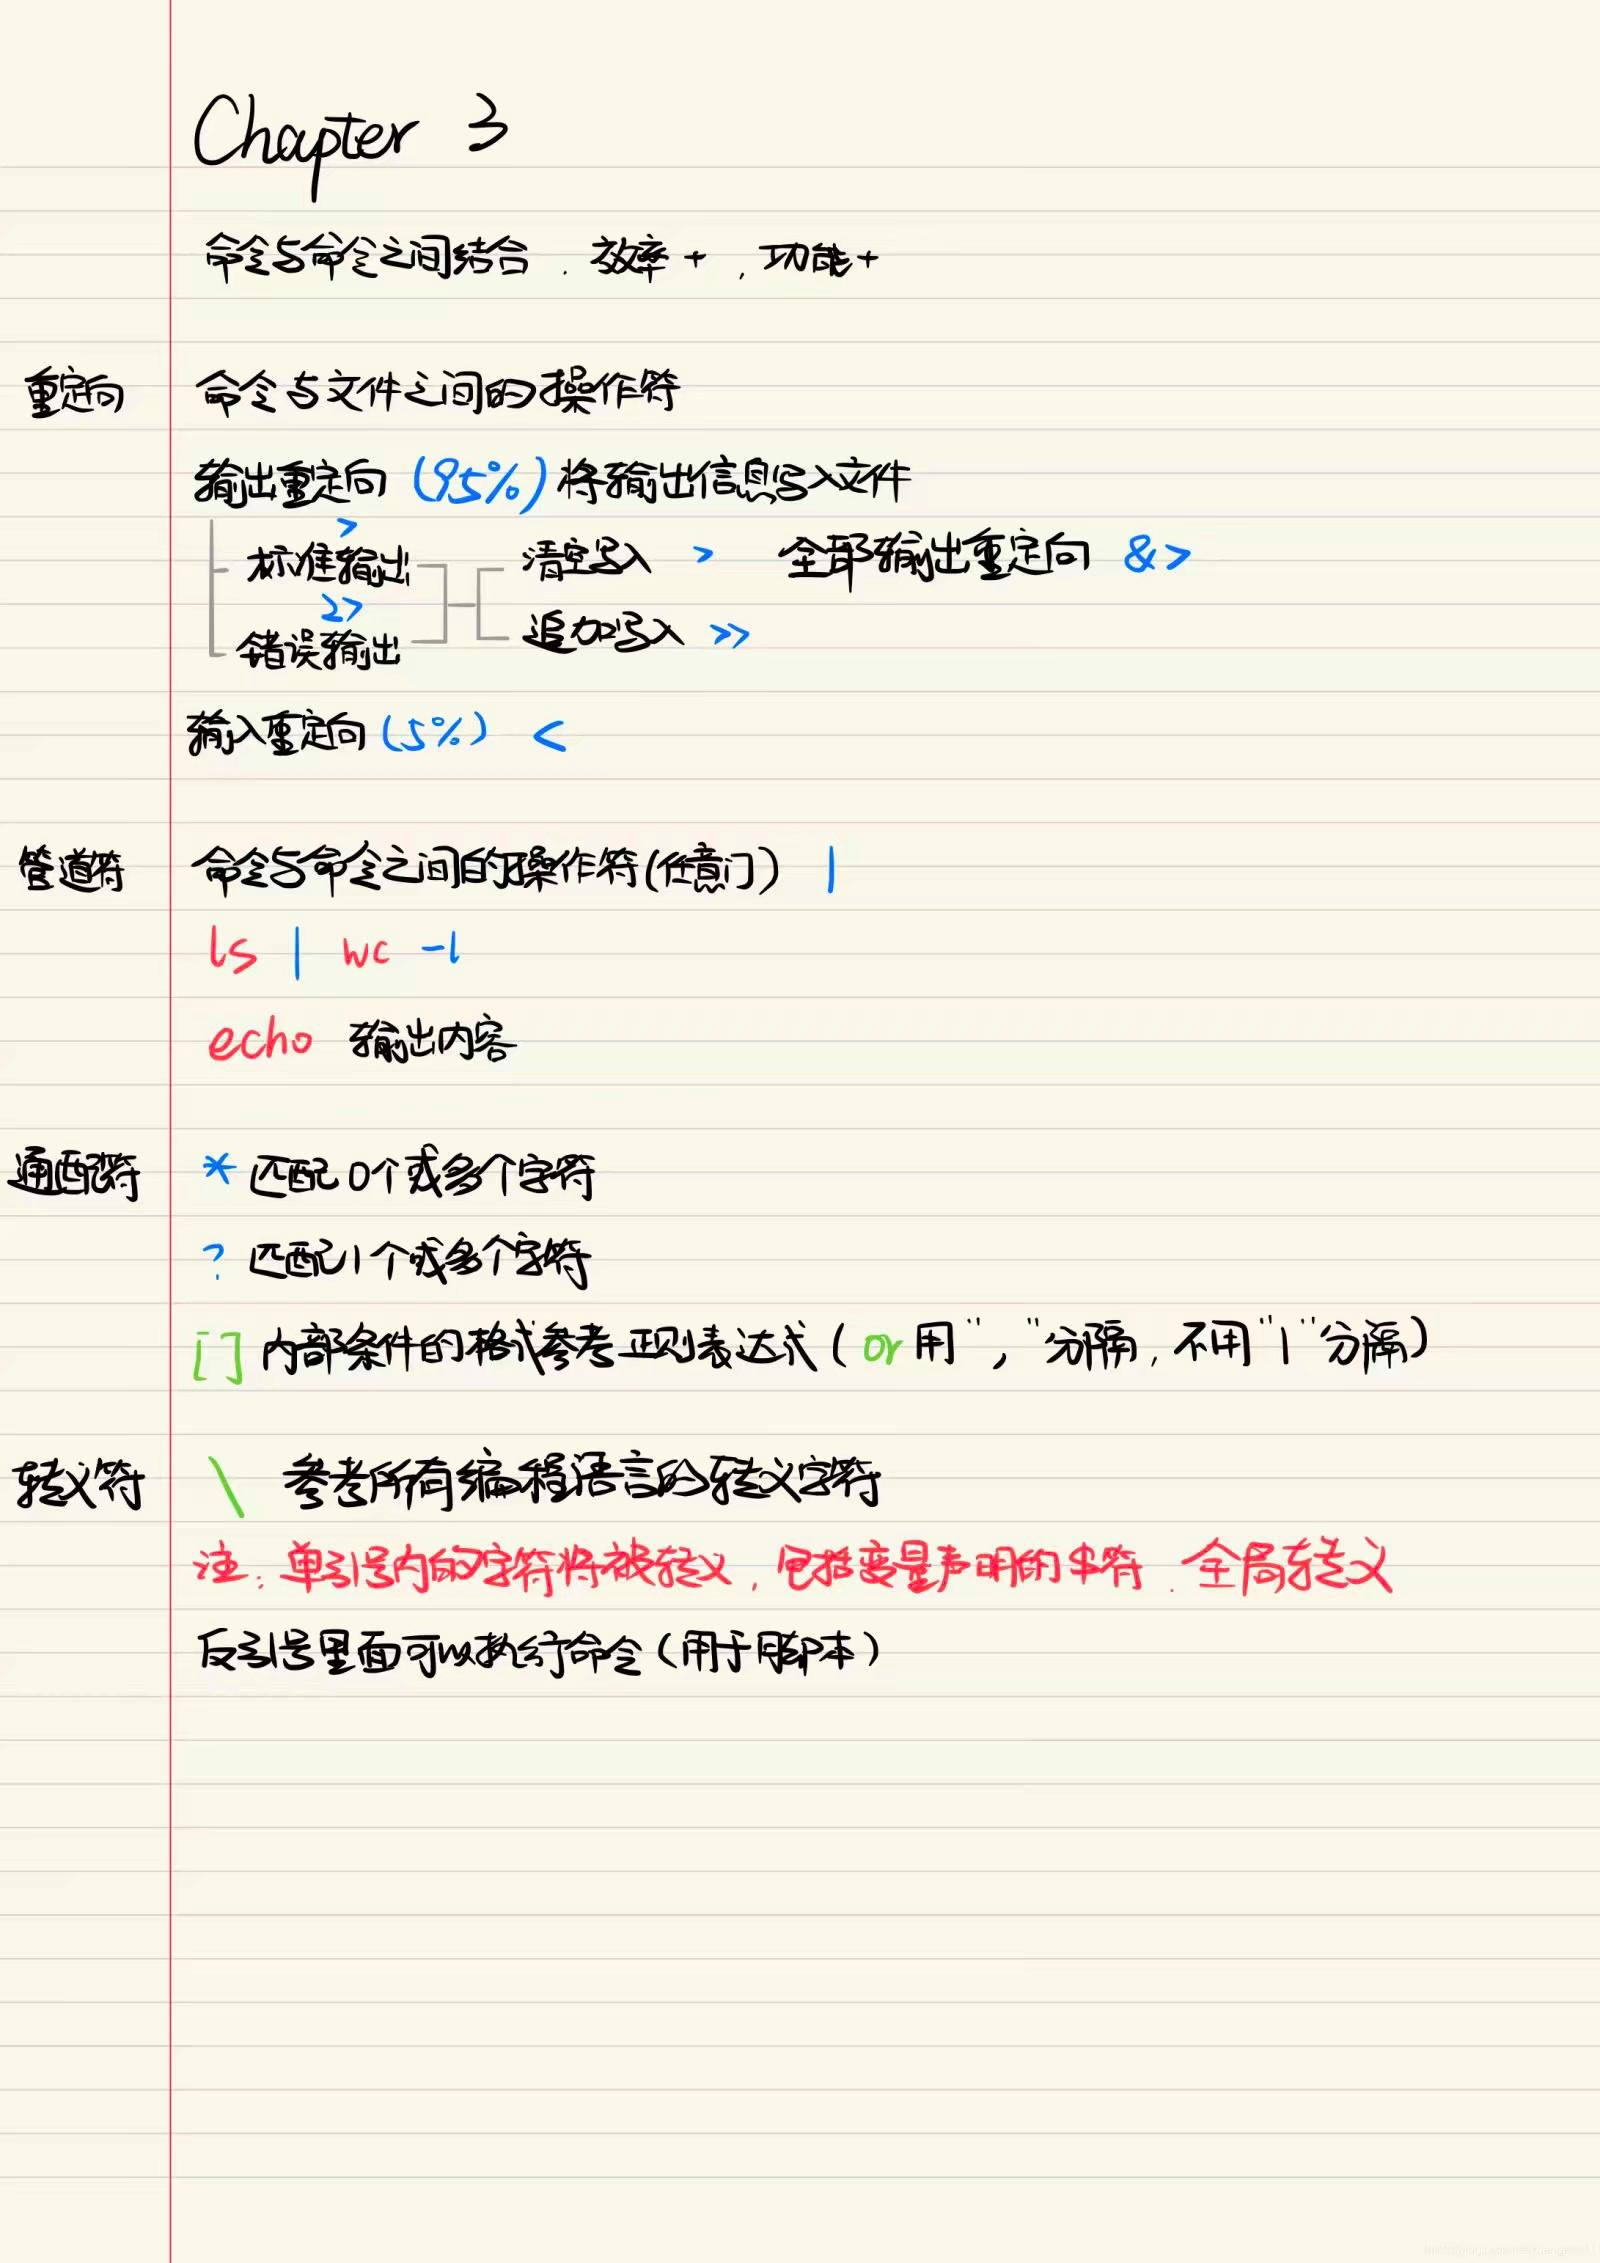 Chapter 3
命令与命令之间结合，效率+，功能+
重定向 命令与文件之间的操作符
输出重定向 (95%) 将输出信息写入文件
>
标准输出 清空写入 > 全部输出重定向 &>
2>
错误输出 追加写入 >>
输入重定向 (5%) <
管道符 命令与命令之间的操作符(任意门) |
ls | wc -l
echo 输出内容
通配符 * 匹配0个或多个字符
? 匹配1个或多个字符
[] 内部条件的格式参考正则表达式 (or用","分隔，不用"|"分隔)
转义符 \ 参考所有编程语言的转义字符
注：单引号内的字符将被转义，包括变量声明的串符，全局转义
反引号里面可以执行命令(用于脚本)